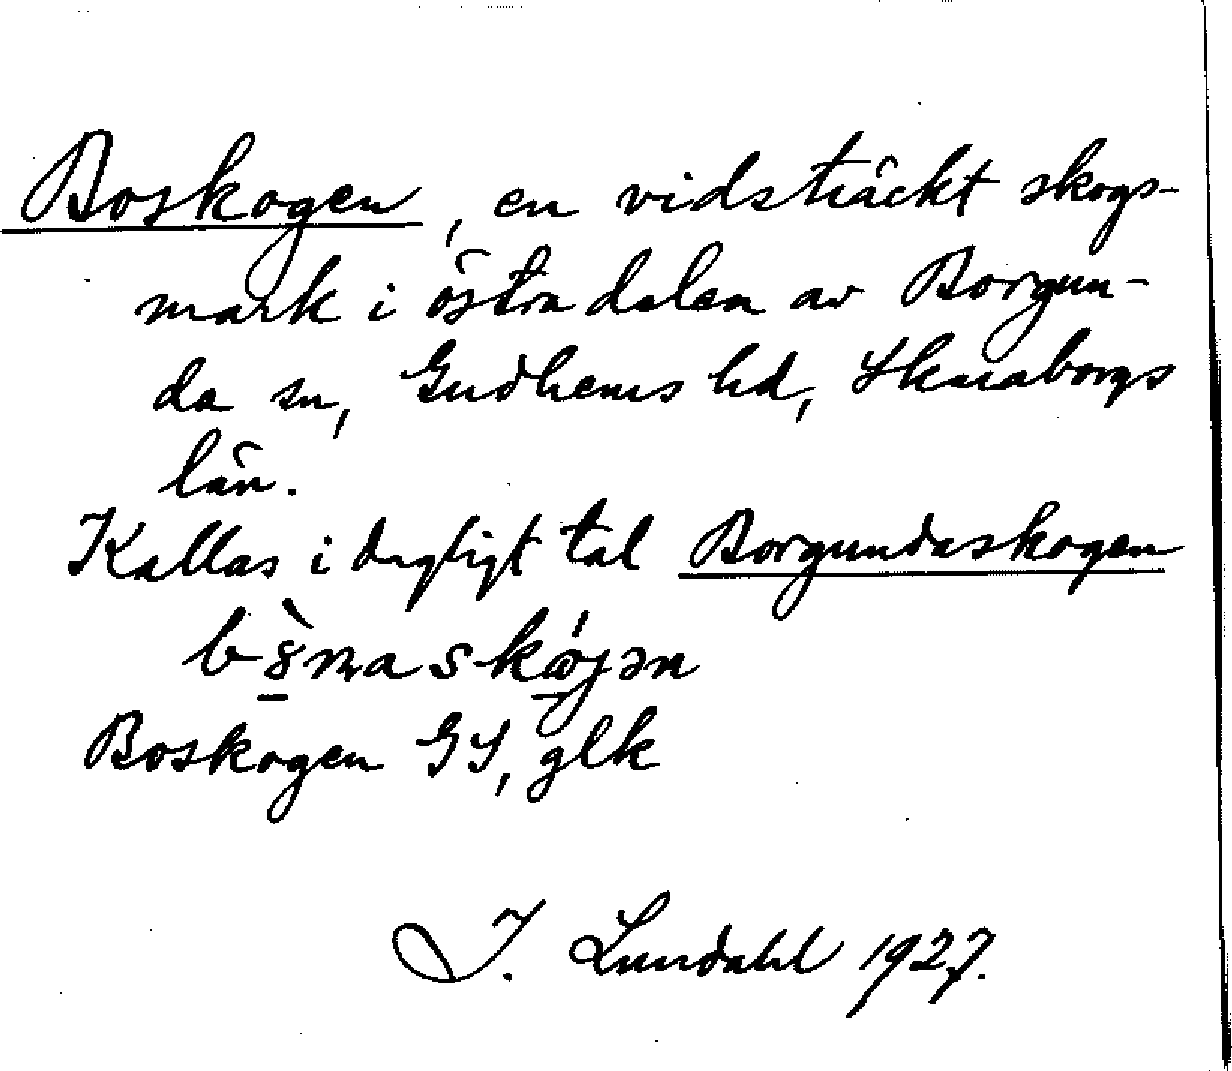 Boskogen, en vidsträckt skogs-
mark i östra delen av Borgun-
da sn, Gudhems hd, Skaraborgs
län.
Kallas i dagligt tal Borgundaskogen
Boskogen GS, glk
I. Lundahl 1927.